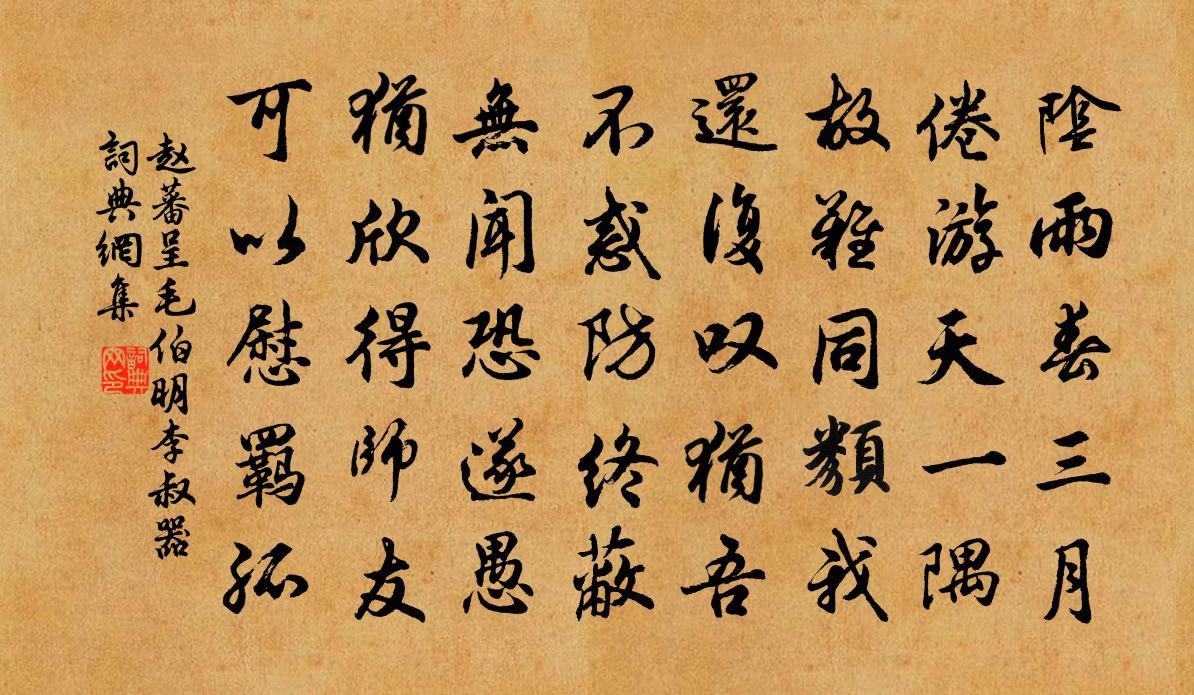 陰雨春三月
倦游天一隅
故難同類我
還復叹猶吾
不惑防終蔽
無聞恐遂愚
猶欣得師友
可以慰羈孤
赵蕃呈毛伯明李叔器
詞典網集
詞典网印